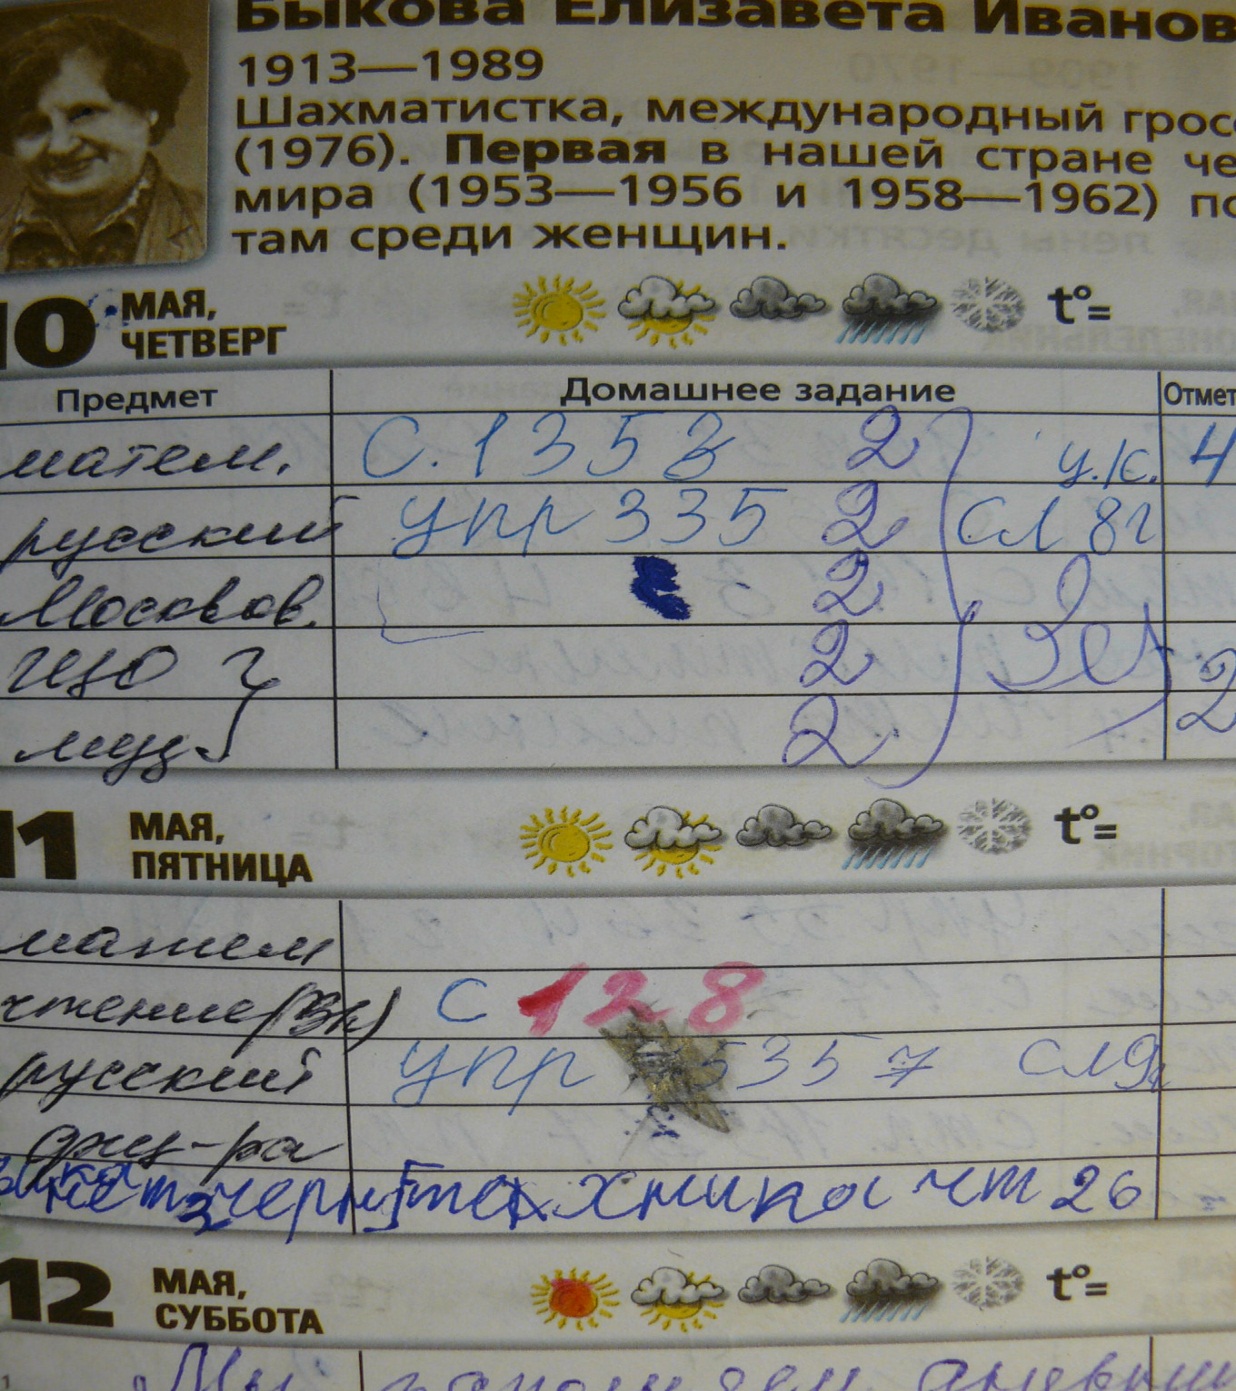 БЫКОВА ЕЛИЗАВЕТА ИВАНОВ
1913—1989
Шахматистка, международный гросс
(1976). Первая в нашей стране че
мира (1953—1956 и 1958—1962) по
там среди женщин.
10 МАЯ, ЧЕТВЕРГ t°=
Предмет Домашнее задание Отмет
матем. С. 135 2 2 у.к. 4
русский упр 335 2 сл 8г
Москвов. 2
ИЗО 2
муз 2 2
11 МАЯ, ПЯТНИЦА t°=
матем
чтение(Вк) с 128
русский упр 5357 сл9г
физ-ра
техника чт 26
12 МАЯ, СУББОТА t°=
Мы